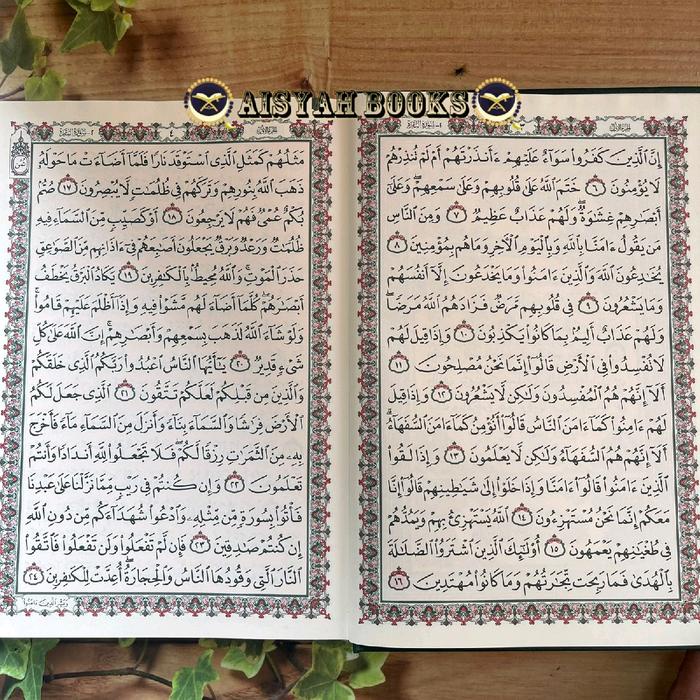 AISYAH BOOKS
إِنَّ ٱلَّذِينَ كَفَرُوا۟ سَوَآءٌ عَلَيْهِمْ ءَأَنذَرْتَهُمْ أَمْ لَمْ تُنذِرْهُمْ
لَا يُؤْمِنُونَ ٦ خَتَمَ ٱللَّهُ عَلَىٰ قُلُوبِهِمْ وَعَلَىٰ سَمْعِهِمْ ۖ وَعَلَىٰٓ
أَبْصَٰرِهِمْ غِشَٰوَةٌ ۖ وَلَهُمْ عَذَابٌ عَظِيمٌ ٧ وَمِنَ ٱلنَّاسِ
مَن يَقُولُ ءَامَنَّا بِٱللَّهِ وَبِٱلْيَوْمِ ٱلْءَاخِرِ وَمَا هُم بِمُؤْمِنِينَ ٨
يُخَٰدِعُونَ ٱللَّهَ وَٱلَّذِينَ ءَامَنُوا۟ وَمَا يَخْدَعُونَ إِلَّآ أَنفُسَهُمْ
وَمَا يَشْعُرُونَ ٩ فِى قُلُوبِهِم مَّرَضٌ فَزَادَهُمُ ٱللَّهُ مَرَضًا ۖ
وَلَهُمْ عَذَابٌ أَلِيمٌۢ بِمَا كَانُوا۟ يَكْذِبُونَ ١٠ وَإِذَا قِيلَ لَهُمْ
لَا تُفْسِدُوا۟ فِى ٱلْأَرْضِ قَالُوٓا۟ إِنَّمَا نَحْنُ مُصْلِحُونَ ١١
أَلَآ إِنَّهُمْ هُمُ ٱلْمُفْسِدُونَ وَلَٰكِن لَّا يَشْعُرُونَ ١٢ وَإِذَا قِيلَ
لَهُمْ ءَامِنُوا۟ كَمَآ ءَامَنَ ٱلنَّاسُ قَالُوٓا۟ أَنُؤْمِنُ كَمَآ ءَامَنَ ٱلسُّفَهَآءُ ۗ
أَلَآ إِنَّهُمْ هُمُ ٱلسُّفَهَآءُ وَلَٰكِن لَّا يَعْلَمُونَ ١٣ وَإِذَا لَقُوا۟
ٱلَّذِينَ ءَامَنُوا۟ قَالُوٓا۟ ءَامَنَّا وَإِذَا خَلَوْا۟ إِلَىٰ شَيَٰطِينِهِمْ قَالُوٓا۟ إِنَّا
مَعَكُمْ إِنَّمَا نَحْنُ مُسْتَهْزِءُونَ ١٤ ٱللَّهُ يَسْتَهْزِئُ بِهِمْ وَيَمُدُّهُمْ
فِى طُغْيَٰنِهِمْ يَعْمَهُونَ ١٥ أُو۟لَٰٓئِكَ ٱلَّذِينَ ٱشْتَرَوُا۟ ٱلضَّلَٰلَةَ
بِٱلْهُدَىٰ فَمَا رَبِحَت تِّجَٰرَتُهُمْ وَمَا كَانُوا۟ مُهْتَدِينَ ١٦
٤
مَثَلُهُمْ كَمَثَلِ ٱلَّذِى ٱسْتَوْقَدَ نَارًا فَلَمَّآ أَضَآءَتْ مَا حَوْلَهُۥ
ذَهَبَ ٱللَّهُ بِنُورِهِمْ وَتَرَكَهُمْ فِى ظُلُمَٰتٍ لَّا يُبْصِرُونَ ١٧ صُمٌّۢ
بُكْمٌ عُمْىٌ فَهُمْ لَا يَرْجِعُونَ ١٨ أَوْ كَصَيِّبٍ مِّنَ ٱلسَّمَآءِ فِيهِ
ظُلُمَٰتٌ وَرَعْدٌ وَبَرْقٌ يَجْعَلُونَ أَصَٰبِعَهُمْ فِىٓ ءَاذَانِهِم مِّنَ ٱلصَّوَٰعِقِ
حَذَرَ ٱلْمَوْتِ ۚ وَٱللَّهُ مُحِيطٌۢ بِٱلْكَٰفِرِينَ ١٩ يَكَادُ ٱلْبَرْقُ يَخْطَفُ
أَبْصَٰرَهُمْ ۖ كُلَّمَآ أَضَآءَ لَهُم مَّشَوْا۟ فِيهِ وَإِذَآ أَظْلَمَ عَلَيْهِمْ قَامُوا۟ ۚ
وَلَوْ شَآءَ ٱللَّهُ لَذَهَبَ بِسَمْعِهِمْ وَأَبْصَٰرِهِمْ ۚ إِنَّ ٱللَّهَ عَلَىٰ كُلِّ
شَىْءٍ قَدِيرٌ ٢٠ يَٰٓأَيُّهَا ٱلنَّاسُ ٱعْبُدُوا۟ رَبَّكُمُ ٱلَّذِى خَلَقَكُمْ
وَٱلَّذِينَ مِن قَبْلِكُمْ لَعَلَّكُمْ تَتَّقُونَ ٢١ ٱلَّذِى جَعَلَ لَكُمُ
ٱلْأَرْضَ فِرَٰشًا وَٱلسَّمَآءَ بِنَآءً وَأَنزَلَ مِنَ ٱلسَّمَآءِ مَآءً فَأَخْرَجَ
بِهِۦ مِنَ ٱلثَّمَرَٰتِ رِزْقًا لَّكُمْ ۖ فَلَا تَجْعَلُوا۟ لِلَّهِ أَندَادًا وَأَنتُمْ
تَعْلَمُونَ ٢٢ وَإِن كُنتُمْ فِى رَيْبٍ مِّمَّا نَزَّلْنَا عَلَىٰ عَبْدِنَا
فَأْتُوا۟ بِسُورَةٍ مِّن مِّثْلِهِۦ وَٱدْعُوا۟ شُهَدَآءَكُم مِّن دُونِ ٱللَّهِ
إِن كُنتُمْ صَٰدِقِينَ ٢٣ فَإِن لَّمْ تَفْعَلُوا۟ وَلَن تَفْعَلُوا۟ فَٱتَّقُوا۟
ٱلنَّارَ ٱلَّتِى وَقُودُهَا ٱلنَّاسُ وَٱلْحِجَارَةُ ۖ أُعِدَّتْ لِلْكَٰفِرِينَ ٢٤
وبشر الذين ءامنوا